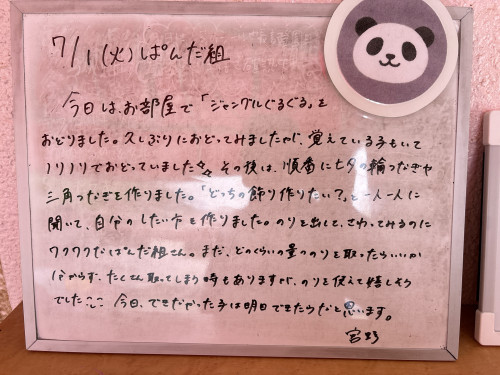 7/1(火)ぱんだ組
今日は、お部屋で「ジャングルぐるぐる」を
おどりました。久しぶりにおどってみましたが、覚えている子もいて
ノリノリでおどっていました✨ その後は、順番に七夕の輪つなぎや
三角つなぎを作りました。「どっちの飾り作りたい?」と一人一人に
聞いて、自分のしたい方を作りました。のりを出して、さわってみるのに
ワクワクなぱんだ組さん。まだ、どのくらいの量ののりを取ったらいいか
分からず、たくさん取ってしまう時もありますが、のりを使えて嬉しそう
でした 今日、できなかった子は明日できたらなと思います。
宮野